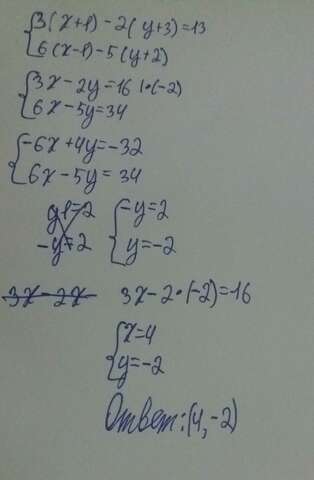 3(x+1)-2(y+3)=13
6(x-1)-5(y+2)
3x-2y=16 |·(-2)
6x-5y=34
-6x+4y=-32
6x-5y=34
-y=2
-y=2
y=-2
3x-2x 3x-2·(-2)=16
x=4
y=-2
Ответ:(4,-2)